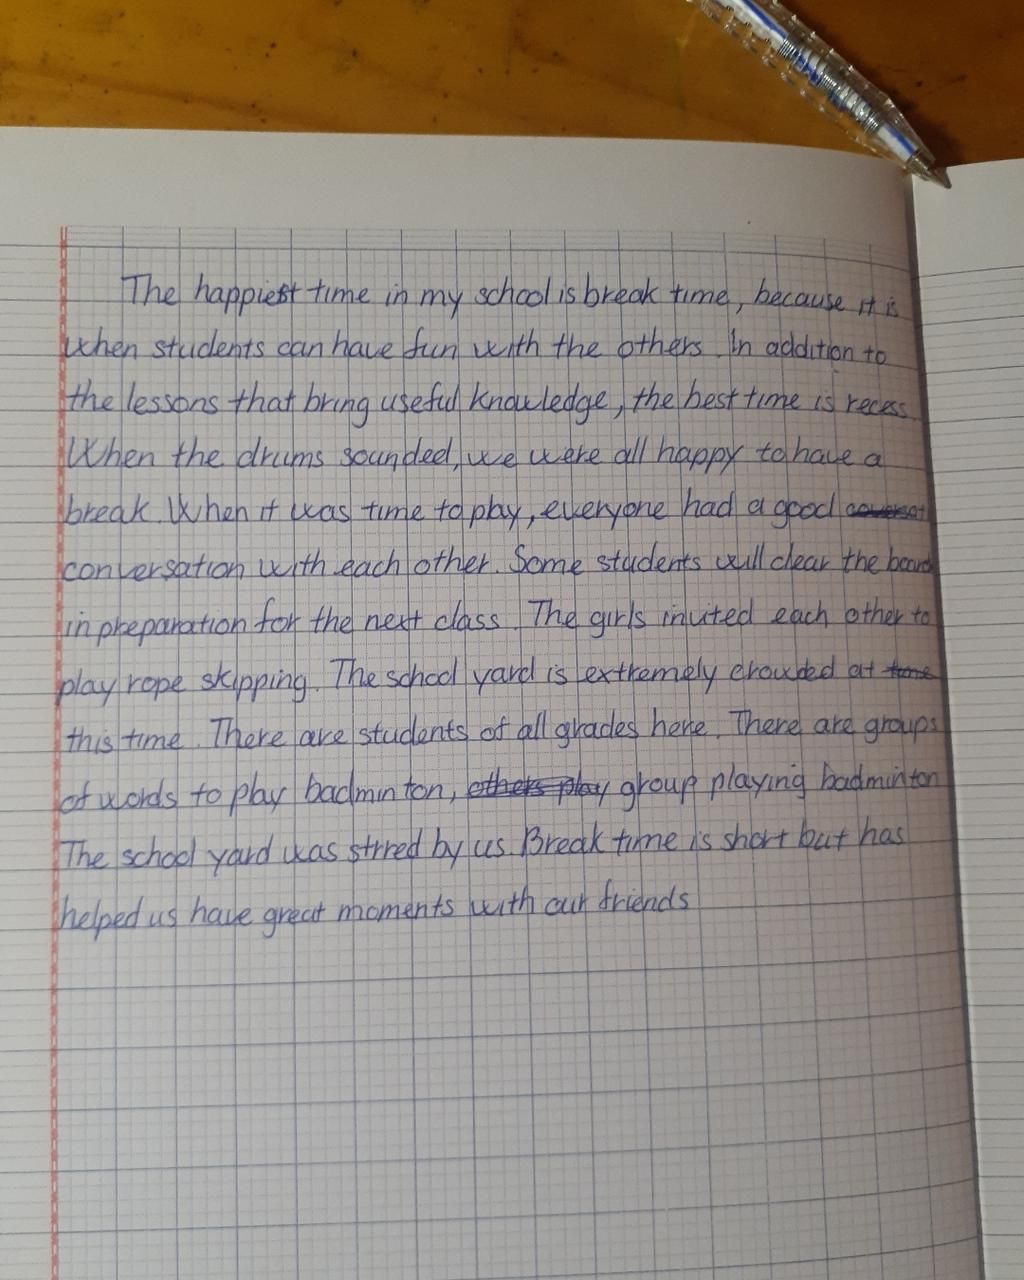 The happiest time in my school is break time, because it is
when students can have fun with the others. In addition to
the lessons that bring useful knowledge, the best time is recess.
When the drums sounded, we were all happy to have a
break. When it was time to play, everyone had a good
conversation with each other. Some students will clear the board
in preparation for the next class. The girls invited each other to
play rope skipping. The school yard is extremely crowded at time
this time. There are students of all grades here. There are groups
of words to play badminton, others play group playing badminton
The school yard was strred by us. Break time is short but has
helped us have great moments with our friends